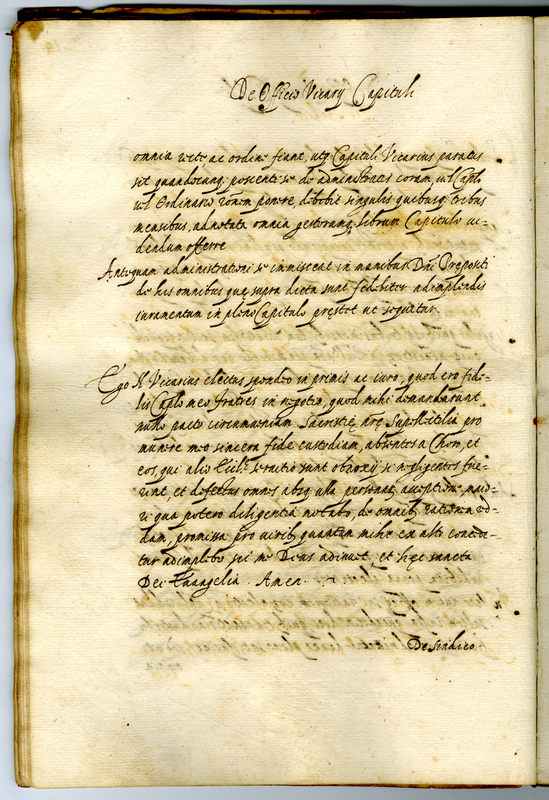 De Officio Vicarij Capituli
omnia recte ac ordine fiant, utq; Capituli Vicarius paratus
sit quandocunq; poscenti se de administratis coram vel Caplo
vel Ordinario ronem ponere debebit singulis quibusq; tribus
mensibus, adnotata omnia gestorumq; librum Capitulo vi-
dendum offerre
Antequam administrationi se immisceat in manibus Dni Prepositi
de his omnibus quę supra dicta sunt fideliter adimplendis
iuramentum in pleno Capitulo pręstet ut sequitur.
Ego N Vicarius electus spondeo in primis ac iuro, quod ero fide-
lis Caplo meo fratres in negotio, quod mihi demandarunt
nullo pacto circumveniam Sacristię nrę Suppellectilia pro
munere meo sincera fide custodiam, absentes a Choro, et
eos, qui alio Eccl. servitio sunt obnoxij si negligentes fue-
rint, et defectus omnes absq; ulla personar. acceptione, maio-
ri qua potero diligentia notabo, de omnib; rationem red-
dam, promissa pro virib; quantum mihi ex alto concedi-
tur adimplebo sic me Deus adiuvet, et hęc sancta
Dei Evangelia. Amen.
De sindico